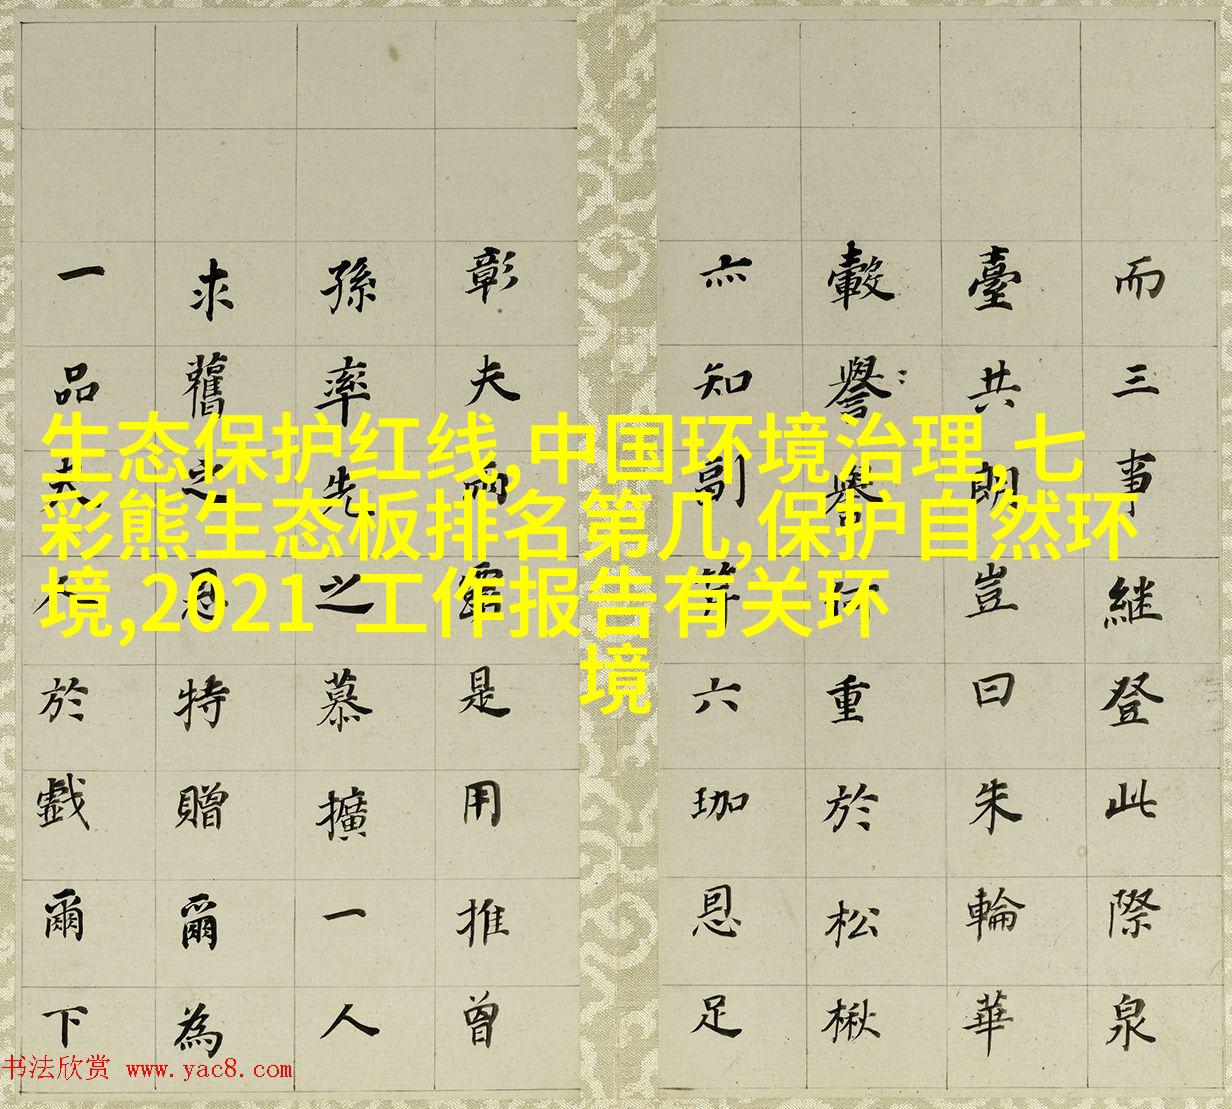 生态保护红线,中国环境治理,七
彩熊生态板排名第几,保护自然环
境,2021 工作报告有关环
境
而三事継登此際泉
臺共朗豈曰朱輪華
轂譽譽何重於松楸
亦知副笄六珈恩足
彰夫雨露是用推曾
孫率先之慕擴一人
求舊之恩特贈爾為
一品夫人於戲爾下
书法欣赏 www.yac8.com